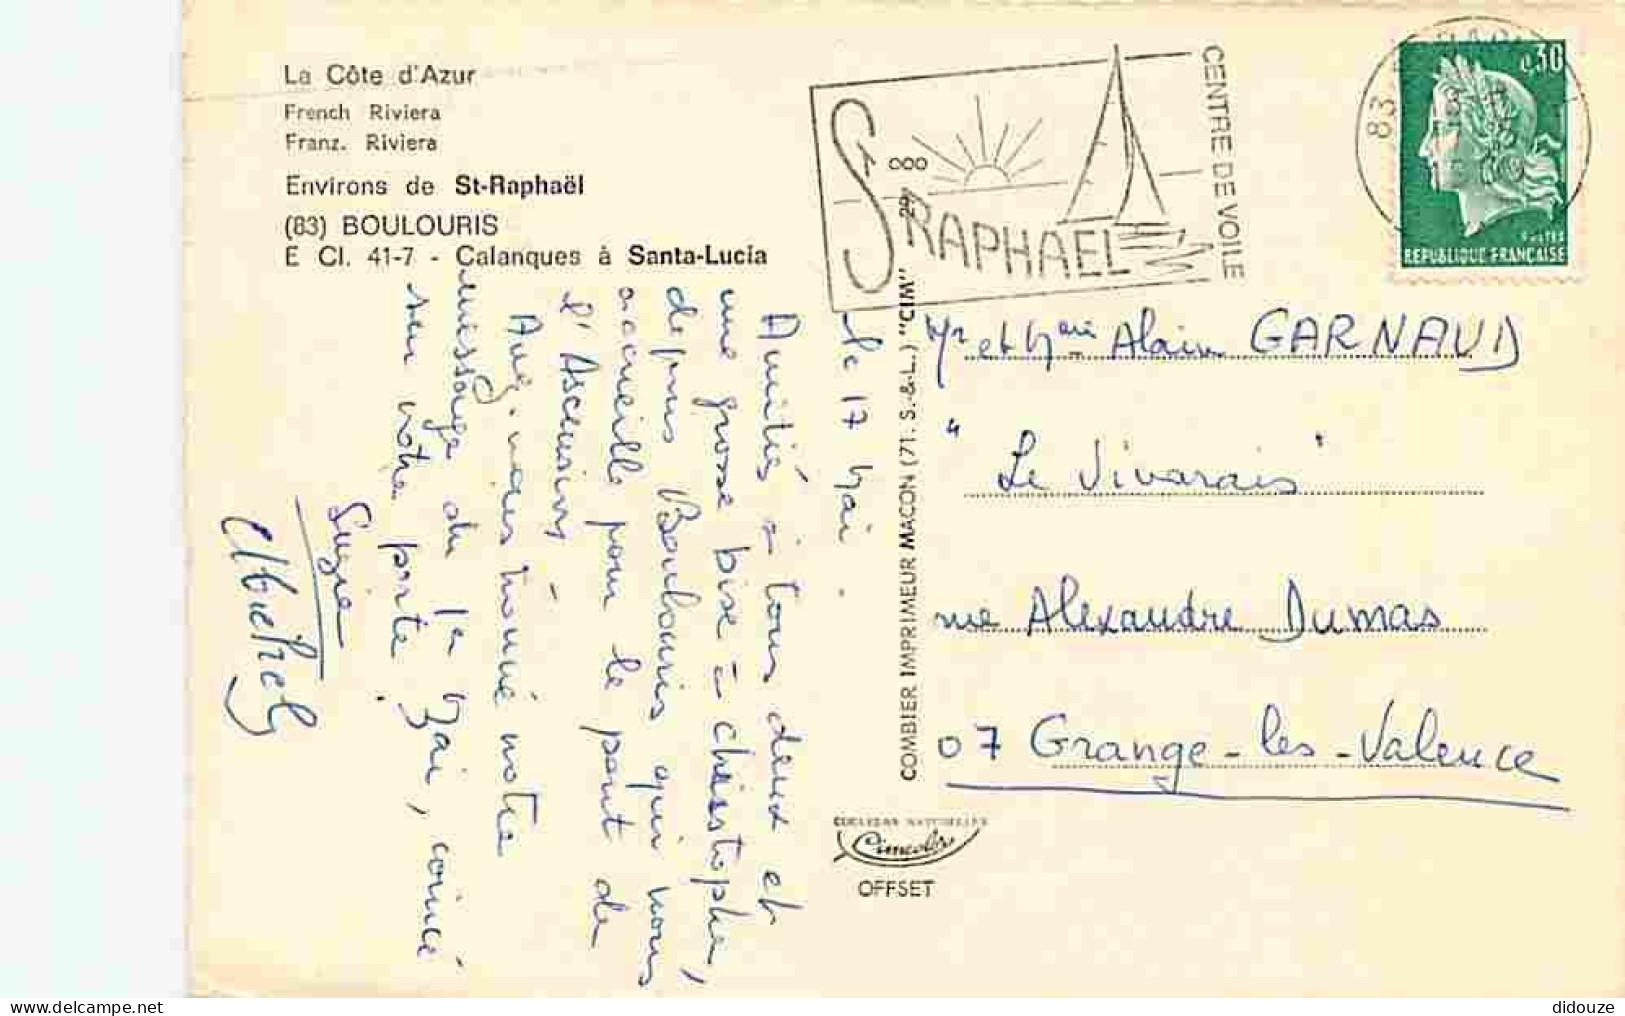 La Côte d'Azur
French Riviera
Franz. Riviera
Environs de St-Raphaël
(83) BOULOURIS
E Cl. 41-7 - Calanques à Santa-Lucia
St RAPHAEL
CENTRE DE VOILE
83
0,30
POSTES
REPUBLIQUE FRANÇAISE
le 17 Mai.
Amitiés à tous deux et
une grosse bise à christophe,
depuis Boulouris qui nous
accueille pour le pont de
l'Ascension -
Avez-vous trouvé notre
message du 1er Mai, coincé
sur votre porte ?
Suzie
COMBIER IMPRIMEUR MACON (71. S.-&-L.) "CIM"
Mr et Mme Alain GARNAUD
"Le Vivarais"
rue Alexandre Dumas
07 Grange-les-Valence
COULEURS NATURELLES
Cimcolor
OFFSET
didouze
www.delcampe.net